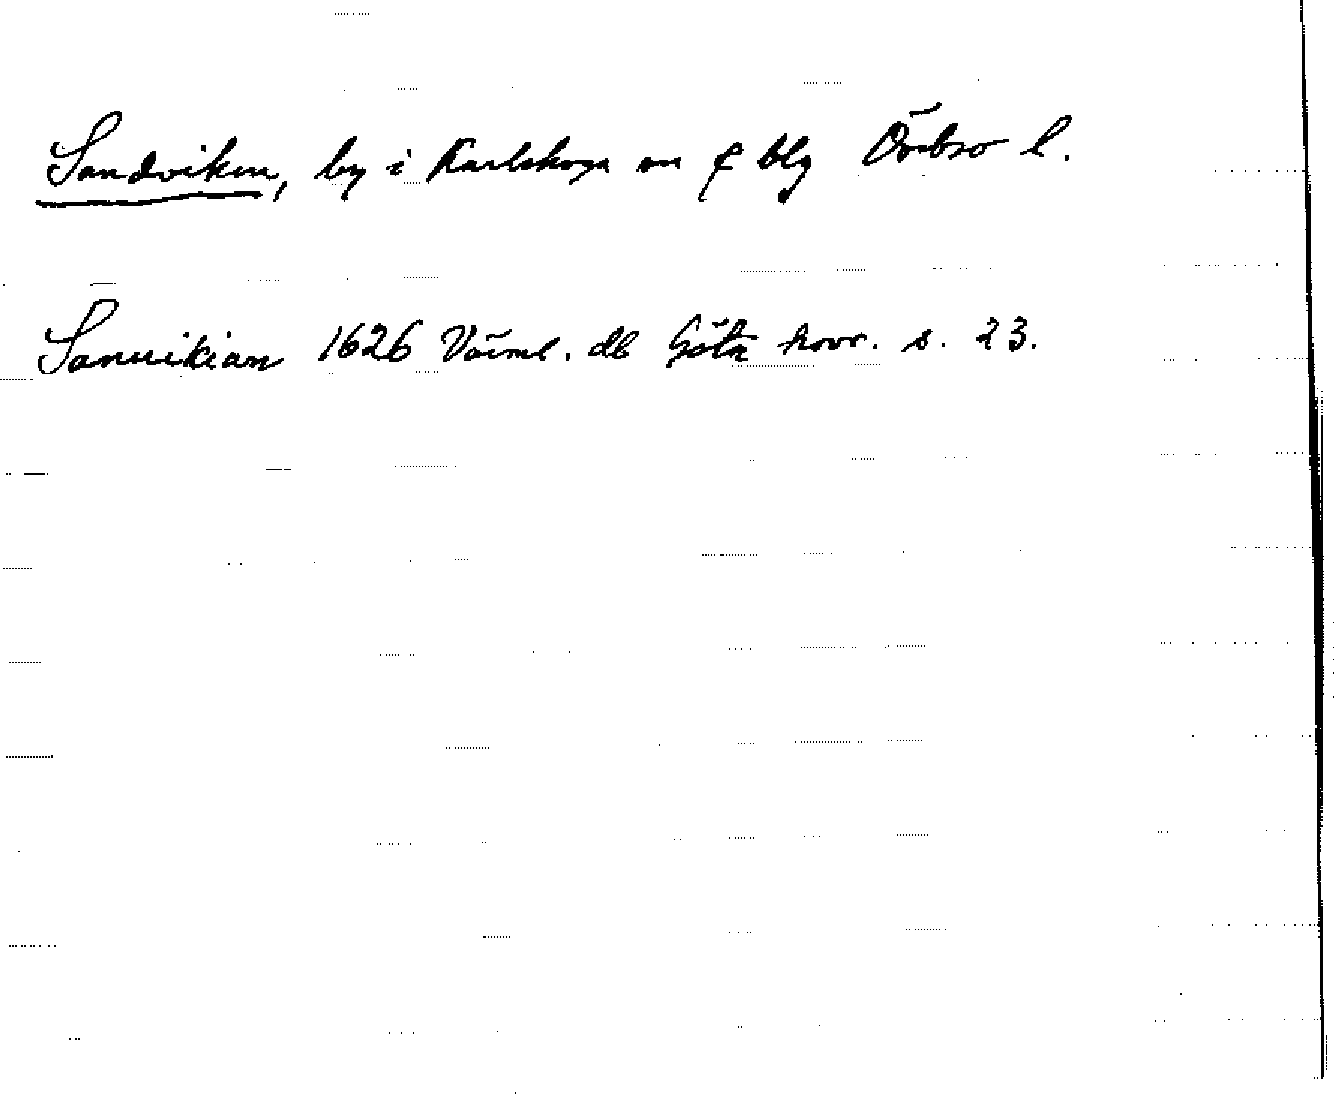 Sandviken, by i Karlskoga sn o bg Örebro l.
Sanuikian 1626 Värml. db Göta hovr. s. 23.